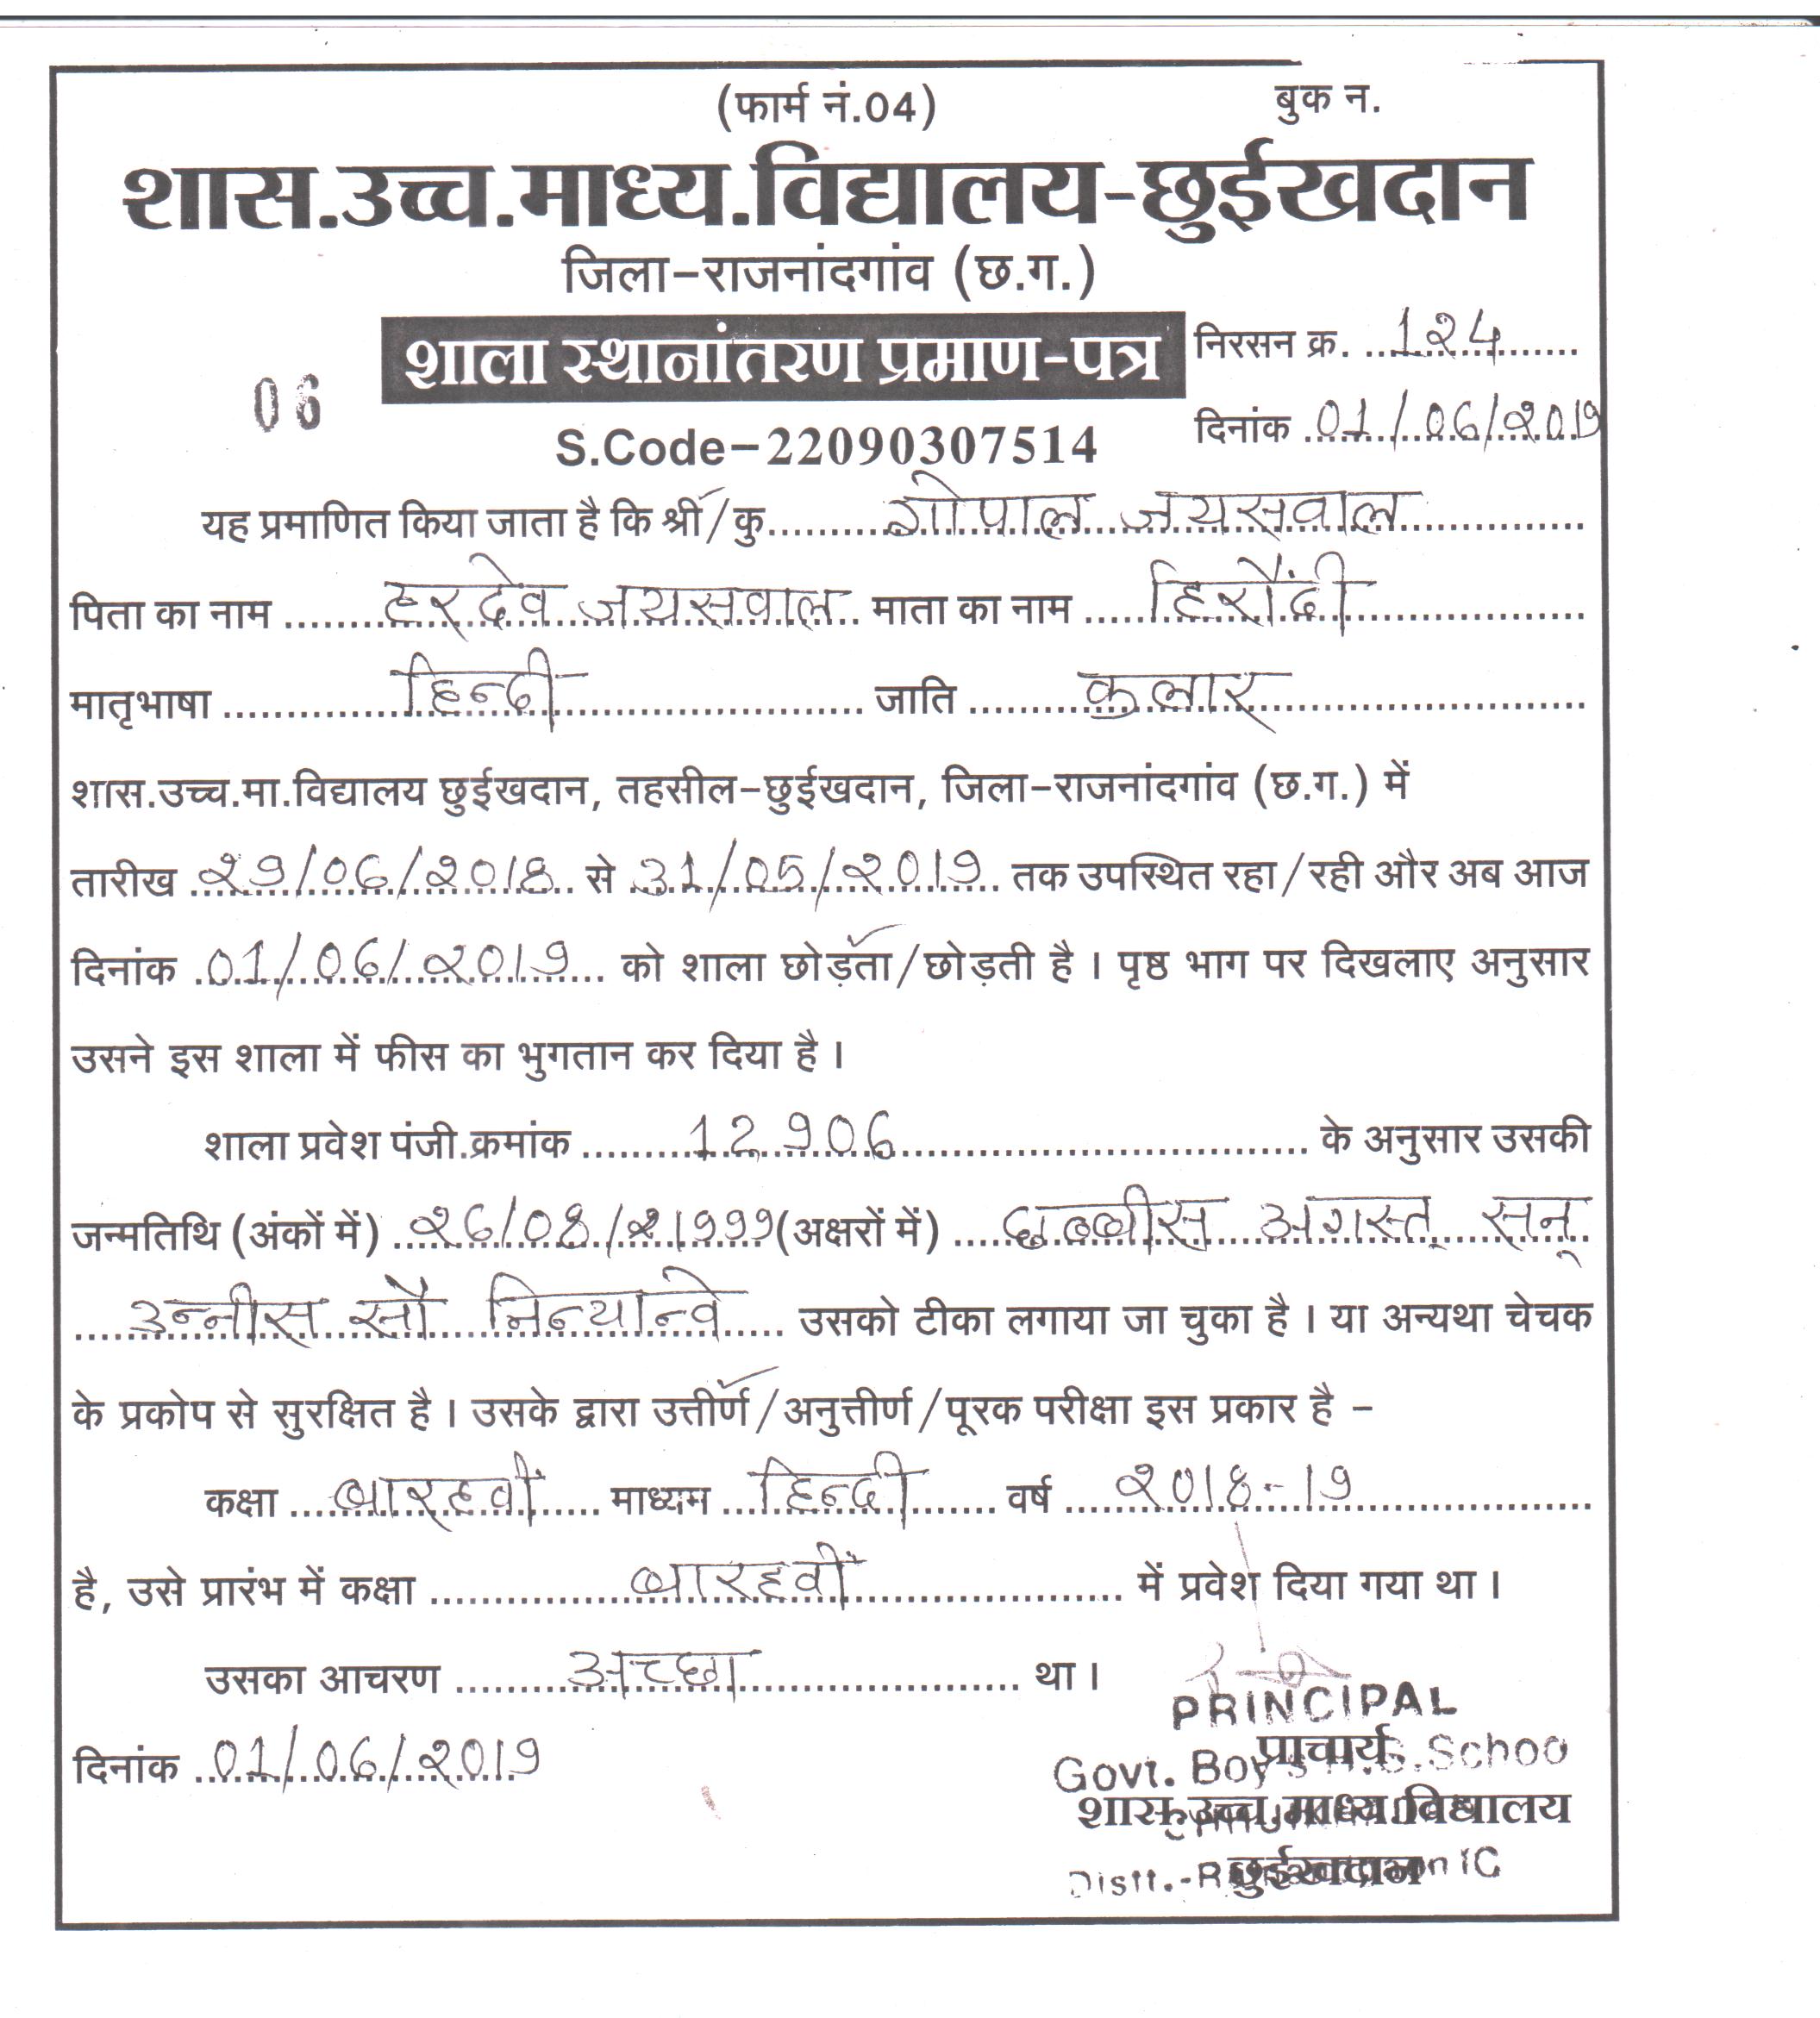 (फार्म नं.04) बुक न.
शास.उच्च.माध्य.विद्यालय-छुईखदान
जिला-राजनांदगांव (छ.ग.)
शाला स्थानांतरण प्रमाण-पत्र निरसन क्र. 124
06
S.Code-22090307514 दिनांक 01/06/2019
यह प्रमाणित किया जाता है कि श्री/कु. गोपाल जयसवाल
पिता का नाम हरदेव जयसवाल माता का नाम हिरौंदी
मातृभाषा हिन्दी जाति कलार
शास.उच्च.मा.विद्यालय छुईखदान, तहसील-छुईखदान, जिला-राजनांदगांव (छ.ग.) में
तारीख 29/06/2018 से 31/05/2019 तक उपस्थित रहा/रही और अब आज
दिनांक 01/06/2019 को शाला छोड़ता/छोड़ती है । पृष्ठ भाग पर दिखलाए अनुसार
उसने इस शाला में फीस का भुगतान कर दिया है ।
शाला प्रवेश पंजी.क्रमांक 12906 के अनुसार उसकी
जन्मतिथि (अंकों में) 26/08/1999 (अक्षरों में) छब्बीस अगस्त सन्
उन्नीस सौ निन्यान्वे उसको टीका लगाया जा चुका है । या अन्यथा चेचक
के प्रकोप से सुरक्षित है । उसके द्वारा उत्तीर्ण/अनुत्तीर्ण/पूरक परीक्षा इस प्रकार है -
कक्षा बारहवीं माध्यम हिन्दी वर्ष 2018-19
है, उसे प्रारंभ में कक्षा बारहवीं में प्रवेश दिया गया था ।
उसका आचरण अच्छा था ।
PRINCIPAL
प्राचार्य
दिनांक 01/06/2019 Govt. Boy's H.S.Schoo
शास.उच्च.माध्य.विद्यालय
छुईखदान
Distt.-